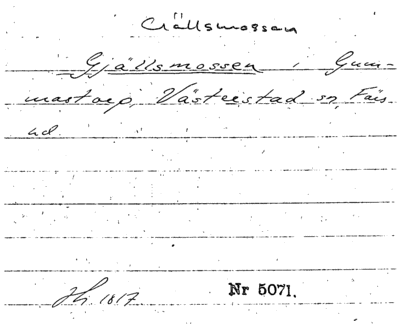 Gjällsmossen
Gjällsmossen, Gum-
mastorp, Västerstad sn, Färs
hd.
Jh. 1817. Nr 5071.